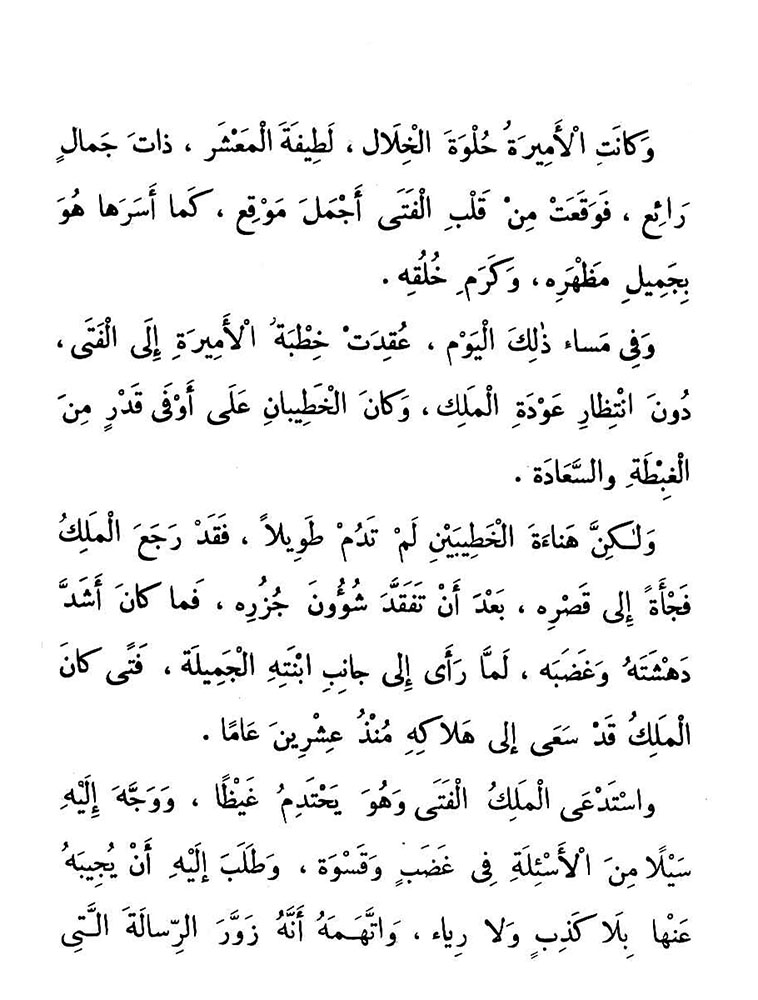 وَكانَتِ الْأَمِيرَةُ حُلْوَةَ الْخِلَال ، لَطِيفَةَ الْمَعْشَر ، ذاتَ جَمالٍ
رَائِع ، فَوَقَعَتْ مِنْ قَلْبِ الْفَتَى أَجْمَلَ مَوْقِع ، كَما أَسَرَها هُوَ
بِجَمِيلِ مَظْهَرِه ، وَكَرَمِ خُلُقِه .
وَفِي مَساء ذٰلِكَ الْيَوْم ، عُقِدَتْ خِطْبَةُ الْأَمِيرَةِ إِلَى الْفَتَى ،
دُونَ انْتِظارِ عَوْدَةِ الْمَلِك ، وَكانَ الْخَطِيبانِ عَلَى أَوْفَى قَدْرٍ مِنَ
الْغِبْطَةِ والسَّعَادَة .
وَلٰكِنَّ هَناءَةَ الْخَطِيبَيْنِ لَمْ تَدُمْ طَوِيلاً ، فَقَدْ رَجَعَ الْمَلِكُ
فَجْأَةً إِلى قَصْرِه ، بَعْدَ أَنْ تَفَقَّدَ شُؤُونَ جُزُرِه ، فَما كانَ أَشَدَّ
دَهْشَتَهُ وَغَضَبَه ، لَمَّا رَأَى إِلى جانِبِ ابْنَتِهِ الْجَمِيلَة ، فَتًى كانَ
الْمَلِكُ قَدْ سَعَى إلى هَلاكِهِ مُنْذُ عِشْرِينَ عَامًا .
واسْتَدْعَى الْمَلِكُ الْفَتَى وَهُوَ يَحْتَدِمُ غَيْظًا ، وَوَجَّهَ إِلَيْهِ
سَيْلًا مِنَ الْأَسْئِلَةِ فِي غَضَبٍ وَقَسْوَة ، وَطَلَبَ إِلَيْهِ أَنْ يُجِيبَهُ
عَنْها بِلَا كَذِبٍ وَلا رِياء ، وَاتَّهَمَهُ أَنَّهُ زَوَّرَ الرِّسالَةَ الَّتِي